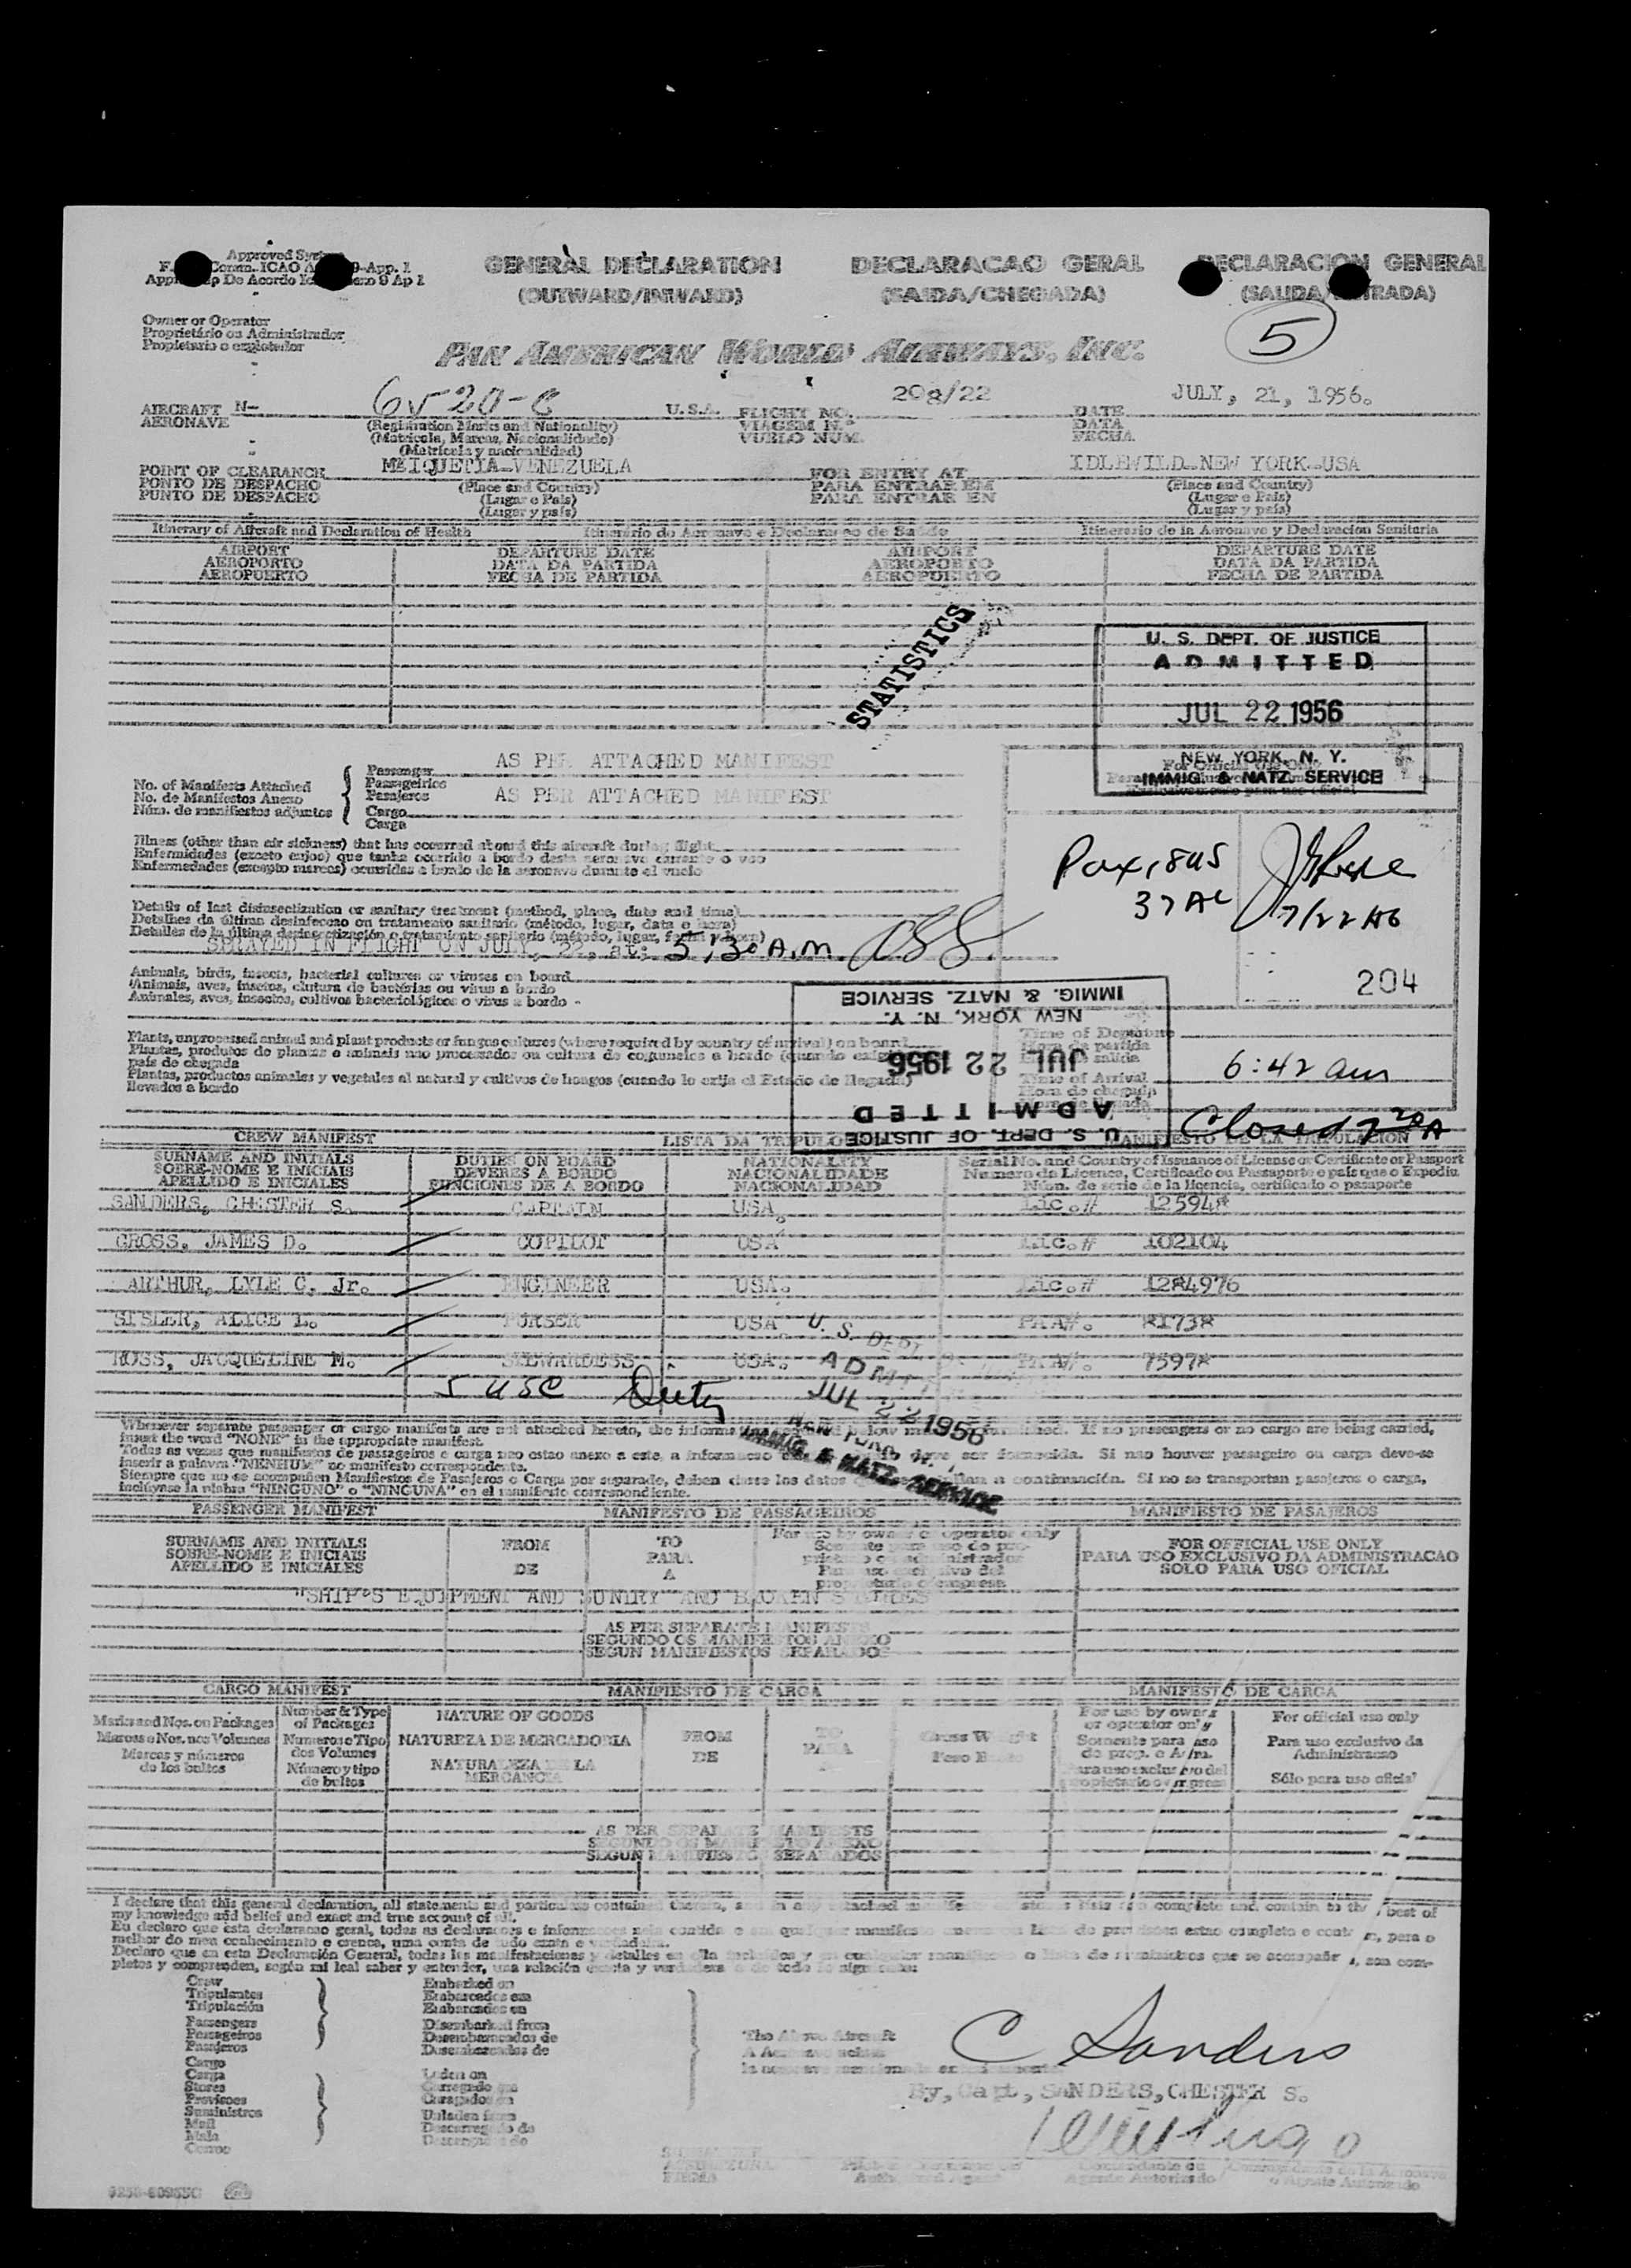 Approved
GENERAL DECLARATION DECLARACAO GERAL DECLARACION GENERAL
(OUTWARD/INWARD) (SAIDA/CHEGADA) (SALIDA/ENTRADA)
5
Owner or Operator
Proprietário ou Administrador
Propietario o explotador
PAN AMERICAN WORLD AIRWAYS, INC.
AIRCRAFT N- 6520-C U.S.A. FLIGHT NO. 208/22 DATE JULY, 21, 1956.
AERONAVE VIAGEM N.º DATA
VUELO NUM. FECHA
(Registration Marks and Nationality)
(Matrícula, Marcas, Nacionalidade)
(Matrícula y nacionalidad)
POINT OF CLEARANCE MAIQUETIA-VENEZUELA FOR ENTRY AT IDLEWILD-NEW YORK-USA
PONTO DE DESPACHO (Place and Country) PARA ENTRAR EM (Place and Country)
PUNTO DE DESPACHO (Lugar e País) PARA ENTRAR EN (Lugar e País)
(Lugar y país) (Lugar y país)
Itinerary of Aircraft and Declaration of Health Itinerário de Aeronave e Declaracao de Saúde Itinerario de la Aeronave y Declaracion Sanitaria
AIRPORT DEPARTURE DATE AIRPORT DEPARTURE DATE
AEROPORTO DATA DA PARTIDA AEROPORTO DATA DA PARTIDA
AEROPUERTO FECHA DE PARTIDA AEROPUERTO FECHA DE PARTIDA
STATISTICS
U. S. DEPT. OF JUSTICE
ADMITTED
JUL 22 1956
NEW YORK, N. Y.
IMMIG. & NATZ. SERVICE
For Official Use Only
No. of Manifests Attached Passenger AS PER ATTACHED MANIFEST
No. de Manifestos Anexo Passageiros
Núm. de manifiestos adjuntos Pasajeros AS PER ATTACHED MANIFEST
Cargo
Carga
Illness (other than air sickness) that has occurred aboard this aircraft during flight
Enfermidades (exceto enjoo) que tenha ocorrido a bordo desta aeronave durante o voo
Enfermedades (excepto mareos) ocurridas a bordo de la aeronave durante el vuelo
37 AL
7/22/56
204
Details of last disinsectization or sanitary treatment (method, place, date and time)
Detalhes da última desinfeccao ou tratamento sanitario (método, lugar, data e hora)
Detalles de la última desinsectización o tratamiento sanitario (método, lugar, fecha y hora)
SPRAYED IN FLIGHT ON JULY, 22, at: 5:30 A.M.
Animals, birds, insects, bacterial cultures or viruses on board
Animais, aves, insetos, clutura de bactérias ou vírus a bordo
Animales, aves, insectos, cultivos bacteriológicos o virus a bordo
Plants, unprocessed animal and plant products or fungus cultures (where required by country of arrival) on board
Plantas, produtos de plantas o animais nao processados ou cultura de cogumelos a bordo
país de chegada
Plantas, productos animales y vegetales al natural y cultivos de hongos (cuando lo exija el Estado de llegada)
llevados a bordo
U. S. DEPT. OF JUSTICE
ADMITTED
JUL 22 1956
NEW YORK, N. Y.
IMMIG. & NATZ. SERVICE
Time of Departure
Hora da partida
salida
Time of Arrival 6:42 am
Hora de chegada
Closed 7 20 A
CREW MANIFEST LISTA DA MANIFIESTO DE LA TRIPULACION
SURNAME AND INITIALS DUTIES ON BOARD NATIONALITY Serial No. and Country of Issuance of License or Certificate or Passport
SOBRE-NOME E INICIAIS DEVERES A BORDO NACIONALIDADE Numero da Licence, Certificado ou Passaporte e país que o Expediu
APELLIDO E INICIALES FUNCIONES DE A BORDO NACIONALIDAD Núm. de serie de la licencia, certificado o pasaporte
SANDERS, CHESTER S. CAPTAIN USA. Lic.# 12594*
GROSS, JAMES D. COPILOT USA Lic.# 102104
ARTHUR, LYLE C. Jr. ENGINEER USA. Lic.# 1284976
SISLER, ALICE L. PURSER USA PAA#. 81738
ROSS, JACQUELINE M. STEWARDESS USA. PAA#. 75978
5 USC Duty
U. S. DEPT
ADMIT
JUL 22 1956
NEW YORK, N. Y.
IMMIG. & NATZ. SERVICE
Whenever separate passenger or cargo manifests are not attached hereto, the below If no passengers or no cargo are being carried,
insert the word "NONE" in the appropriate manifest.
Todas as vezes que manifestos de passageiros e carga nao estao anexo a este, a informacao deve ser fornecida. Si nao houver passageiro ou carga deve-se
inserir a palavra "NENHUM" no manifesto correspondente.
Siempre que no se acompañen Manifiestos de Pasajeros o Carga por separado, deben darse los datos a continuación. Si no se transportan pasajeros o carga,
inclúyase la palabra "NINGUNO" o "NINGUNA" en el manifiesto correspondiente.
PASSENGER MANIFEST MANIFESTO DE PASSAGEIROS MANIFIESTO DE PASAJEROS
SURNAME AND INITIALS FROM TO For use by owner or operator only FOR OFFICIAL USE ONLY
SOBRE-NOME E INICIAIS PARA PARA USO EXCLUSIVO DA ADMINISTRACAO
APELLIDO E INICIALES DE A SOLO PARA USO OFICIAL
"SHIP'S EQUIPMENT AND SUNDRY AND BROKEN STORES
AS PER SEPARATE MANIFESTS
SEGUNDO OS MANIFESTOS ANEXO
SEGUN MANIFIESTOS SEPARADOS
CARGO MANIFEST MANIFIESTO DE CARGA MANIFESTO DE CARGA
Marks and Nos. on Packages Number & Type of Packages NATURE OF GOODS FROM TO Gross Weight For use by owner or operator only For official use only
Marcas e Nos. nos Volumes Numero e Tipo dos Volumes NATUREZA DE MERCADORIA DE PARA Peso Bruto Somente para uso de prop. e Adm. Para uso exclusivo da Administracao
Marcas y números de los bultos Número y tipo de bultos NATURALEZA DE LA MERCANCIA Sólo para uso oficial
AS PER SEPARATE MANIFESTS
SEGUNDO OS MANIFESTO ANEXO
SEGUN MANIFIESTOS SEPARADOS
I declare that this general declaration, all statements and particulars contained therein, and in any attached complete and contain to the best of
my knowledge and belief and exact and true account of all.
Eu declaro que esta declaracao geral, todas as declaracoes e informacoes nela contida e em qualquer manifesto estao completo e para o
melhor do meu conhecimento e crenca, uma conta de todo exata e verdadeira.
Declaro que en esta Declaración General, todas las manifestaciones y detalles en ella incluídos y en cualquier o lista de suministros que se acompañan, son com-
pletos y comprenden, según mi leal saber y entender, una relación exacta y verdadera de todo
Crew Embarked on
Tripulantes Embarcados em
Tripulación Embarcados en
Passengers Disembarked from
Passageiros Desembarcados de
Pasajeros Desembarcados de
Cargo
Carga Laden on
Stores Carregado
Provisoes Cargados en
Suministros
Mail Unladen from
Mala Descarregado de
Correo
The Above Aircraft
C Sanders
By, Capt, SANDERS, CHESTER S.